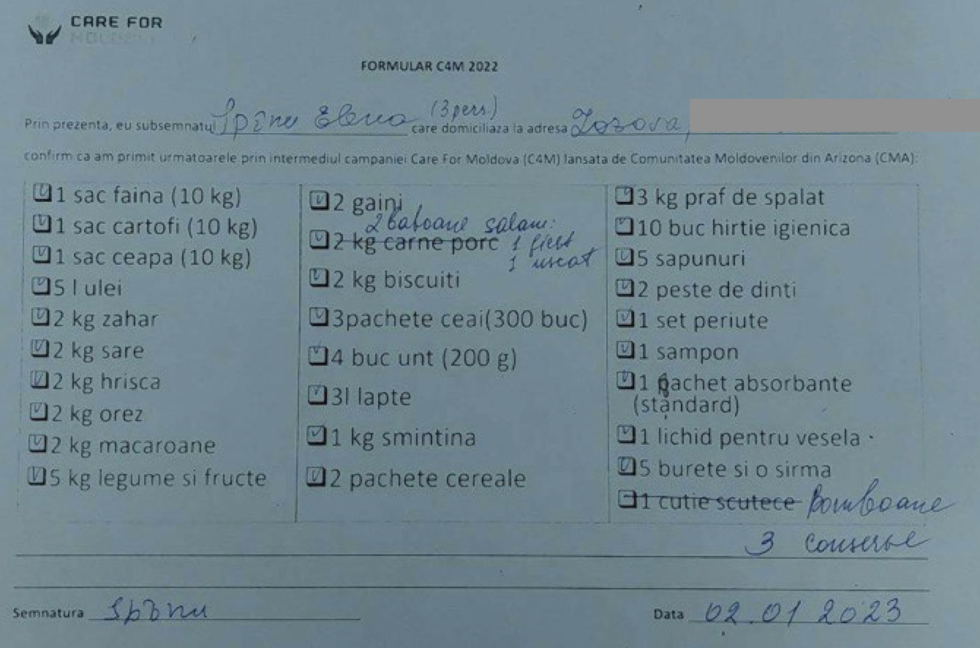 CARE FOR
MOLDOVA
FORMULAR C4M 2022
Prin prezenta, eu subsemnatul Spînu Elena (3 pers) care domiciliaza la adresa Zosova,
confirm ca am primit urmatoarele prin intermediul campaniei Care For Moldova (C4M) lansata de Comunitatea Moldovenilor din Arizona (CMA):
1 sac faina (10 kg)
1 sac cartofi (10 kg)
1 sac ceapa (10 kg)
5 l ulei
2 kg zahar
2 kg sare
2 kg hrisca
2 kg orez
2 kg macaroane
5 kg legume si fructe
2 gaini
2 batoane salam:
2 kg carne porc 1 fiert
1 uscat
2 kg biscuiti
3pachete ceai(300 buc)
4 buc unt (200 g)
3l lapte
1 kg smintina
2 pachete cereale
3 kg praf de spalat
10 buc hirtie igienica
5 sapunuri
2 peste de dinti
1 set periute
1 sampon
1 pachet absorbante
(standard)
1 lichid pentru vesela
5 burete si o sirma
1 cutie scutece Bomboane
3 conserve
Semnatura Spînu
Data 02.01 2023